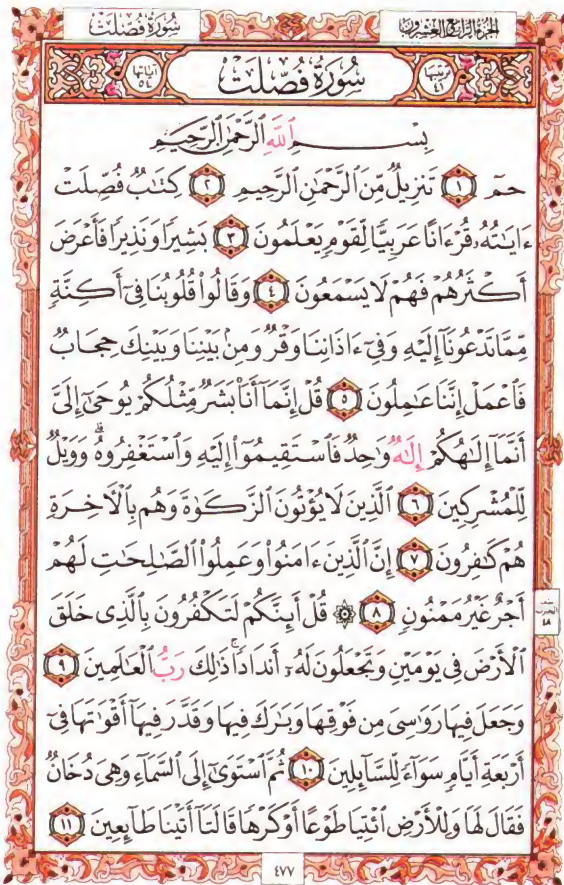 سُورَةُ فُصِّلَتْ الجُزْءُ الرَّابِعُ وَالعِشْرُونَ
آيَاتُهَا ٥٤ سُورَةُ فُصِّلَتْ تَرْتِيبُهَا ٤١
بِسْمِ ٱللَّهِ ٱلرَّحْمَٰنِ ٱلرَّحِيمِ
حمٓ ١ تَنزِيلٌ مِّنَ ٱلرَّحْمَٰنِ ٱلرَّحِيمِ ٢ كِتَٰبٌ فُصِّلَتْ
ءَايَٰتُهُۥ قُرْءَانًا عَرَبِيًّا لِّقَوْمٍ يَعْلَمُونَ ٣ بَشِيرًا وَنَذِيرًا فَأَعْرَضَ
أَكْثَرُهُمْ فَهُمْ لَا يَسْمَعُونَ ٤ وَقَالُوا۟ قُلُوبُنَا فِىٓ أَكِنَّةٍ
مِّمَّا تَدْعُونَآ إِلَيْهِ وَفِىٓ ءَاذَانِنَا وَقْرٌ وَمِنۢ بَيْنِنَا وَبَيْنِكَ حِجَابٌ
فَٱعْمَلْ إِنَّنَا عَٰمِلُونَ ٥ قُلْ إِنَّمَآ أَنَا۠ بَشَرٌ مِّثْلُكُمْ يُوحَىٰٓ إِلَىَّ
أَنَّمَآ إِلَٰهُكُمْ إِلَٰهٌ وَٰحِدٌ فَٱسْتَقِيمُوٓا۟ إِلَيْهِ وَٱسْتَغْفِرُوهُ ۗ وَوَيْلٌ
لِّلْمُشْرِكِينَ ٦ ٱلَّذِينَ لَا يُؤْتُونَ ٱلزَّكَوٰةَ وَهُم بِٱلْـَٔاخِرَةِ
هُمْ كَٰفِرُونَ ٧ إِنَّ ٱلَّذِينَ ءَامَنُوا۟ وَعَمِلُوا۟ ٱلصَّٰلِحَٰتِ لَهُمْ
أَجْرٌ غَيْرُ مَمْنُونٍ ٨ ۞ قُلْ أَئِنَّكُمْ لَتَكْفُرُونَ بِٱلَّذِى خَلَقَ
ٱلْأَرْضَ فِى يَوْمَيْنِ وَتَجْعَلُونَ لَهُۥٓ أَندَادًا ۚ ذَٰلِكَ رَبُّ ٱلْعَٰلَمِينَ ٩
وَجَعَلَ فِيهَا رَوَٰسِىَ مِن فَوْقِهَا وَبَٰرَكَ فِيهَا وَقَدَّرَ فِيهَآ أَقْوَٰتَهَا فِىٓ
أَرْبَعَةِ أَيَّامٍ سَوَآءً لِّلسَّآئِلِينَ ١٠ ثُمَّ ٱسْتَوَىٰٓ إِلَى ٱلسَّمَآءِ وَهِىَ دُخَانٌ
فَقَالَ لَهَا وَلِلْأَرْضِ ٱئْتِيَا طَوْعًا أَوْ كَرْهًا قَالَتَآ أَتَيْنَا طَآئِعِينَ ١١
نصف
الحزب
٤٨
٤٧٧